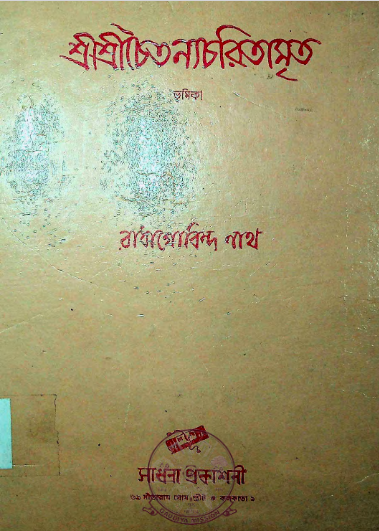 শ্রীশ্রীচৈতন্যচরিতামৃত
ভূমিকা
রাধাগোবিন্দ নাথ
সাধনা প্রকাশনী
কলকাতা ৯